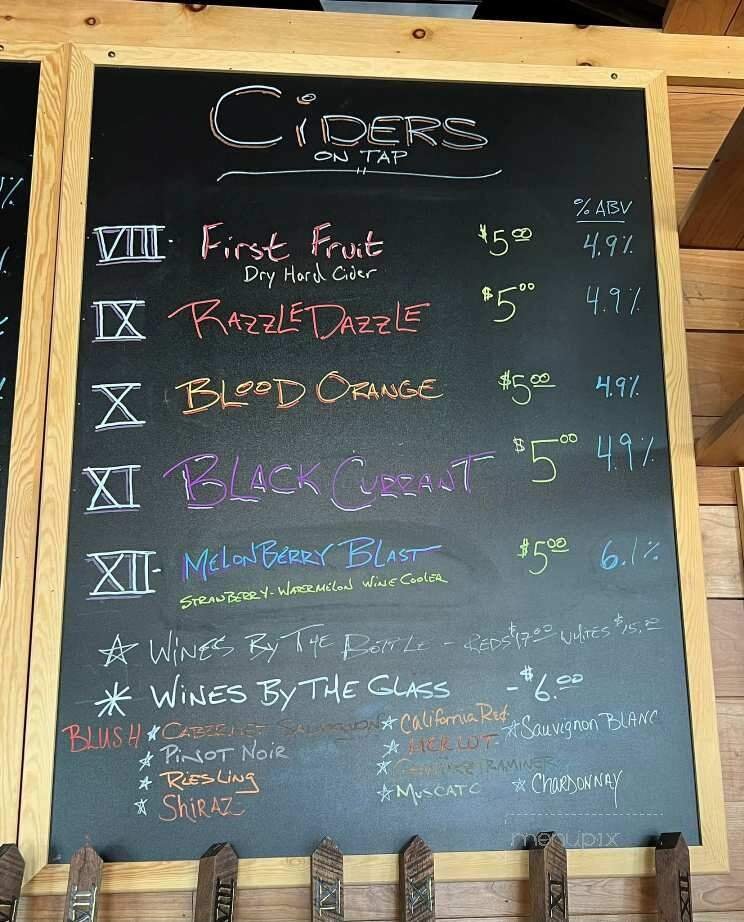 CiDERS
ON TAP
% ABV
VIII. First Fruit $5.00 4.9%
Dry Hard Cider
IX RAZZLE DAZZLE $5.00 4.9%
X BLOOD ORANGE $5.00 4.9%
XI BLACK CURRANT $5.00 4.9%
XII- MELONBERRY BLAST $5.00 6.1%
STRAWBERRY-WATERMELON WINE COOLER
☆ WINES BY THE BOTTLE - REDS $17.00 WHITES $15.00
* WINES BY THE GLASS - $6.00
BLUSH ☆ CABERNET SAUVIGNON ☆ California Red ☆ Sauvignon BLANC
☆ PINOT NOIR ☆ MERLOT
☆ RIESLING ☆ GEWURZTRAMINER
☆ SHIRAZ ☆ MUSCATO ☆ CHARDONNAY
menupix
VII
VIII
IX
XI
XII